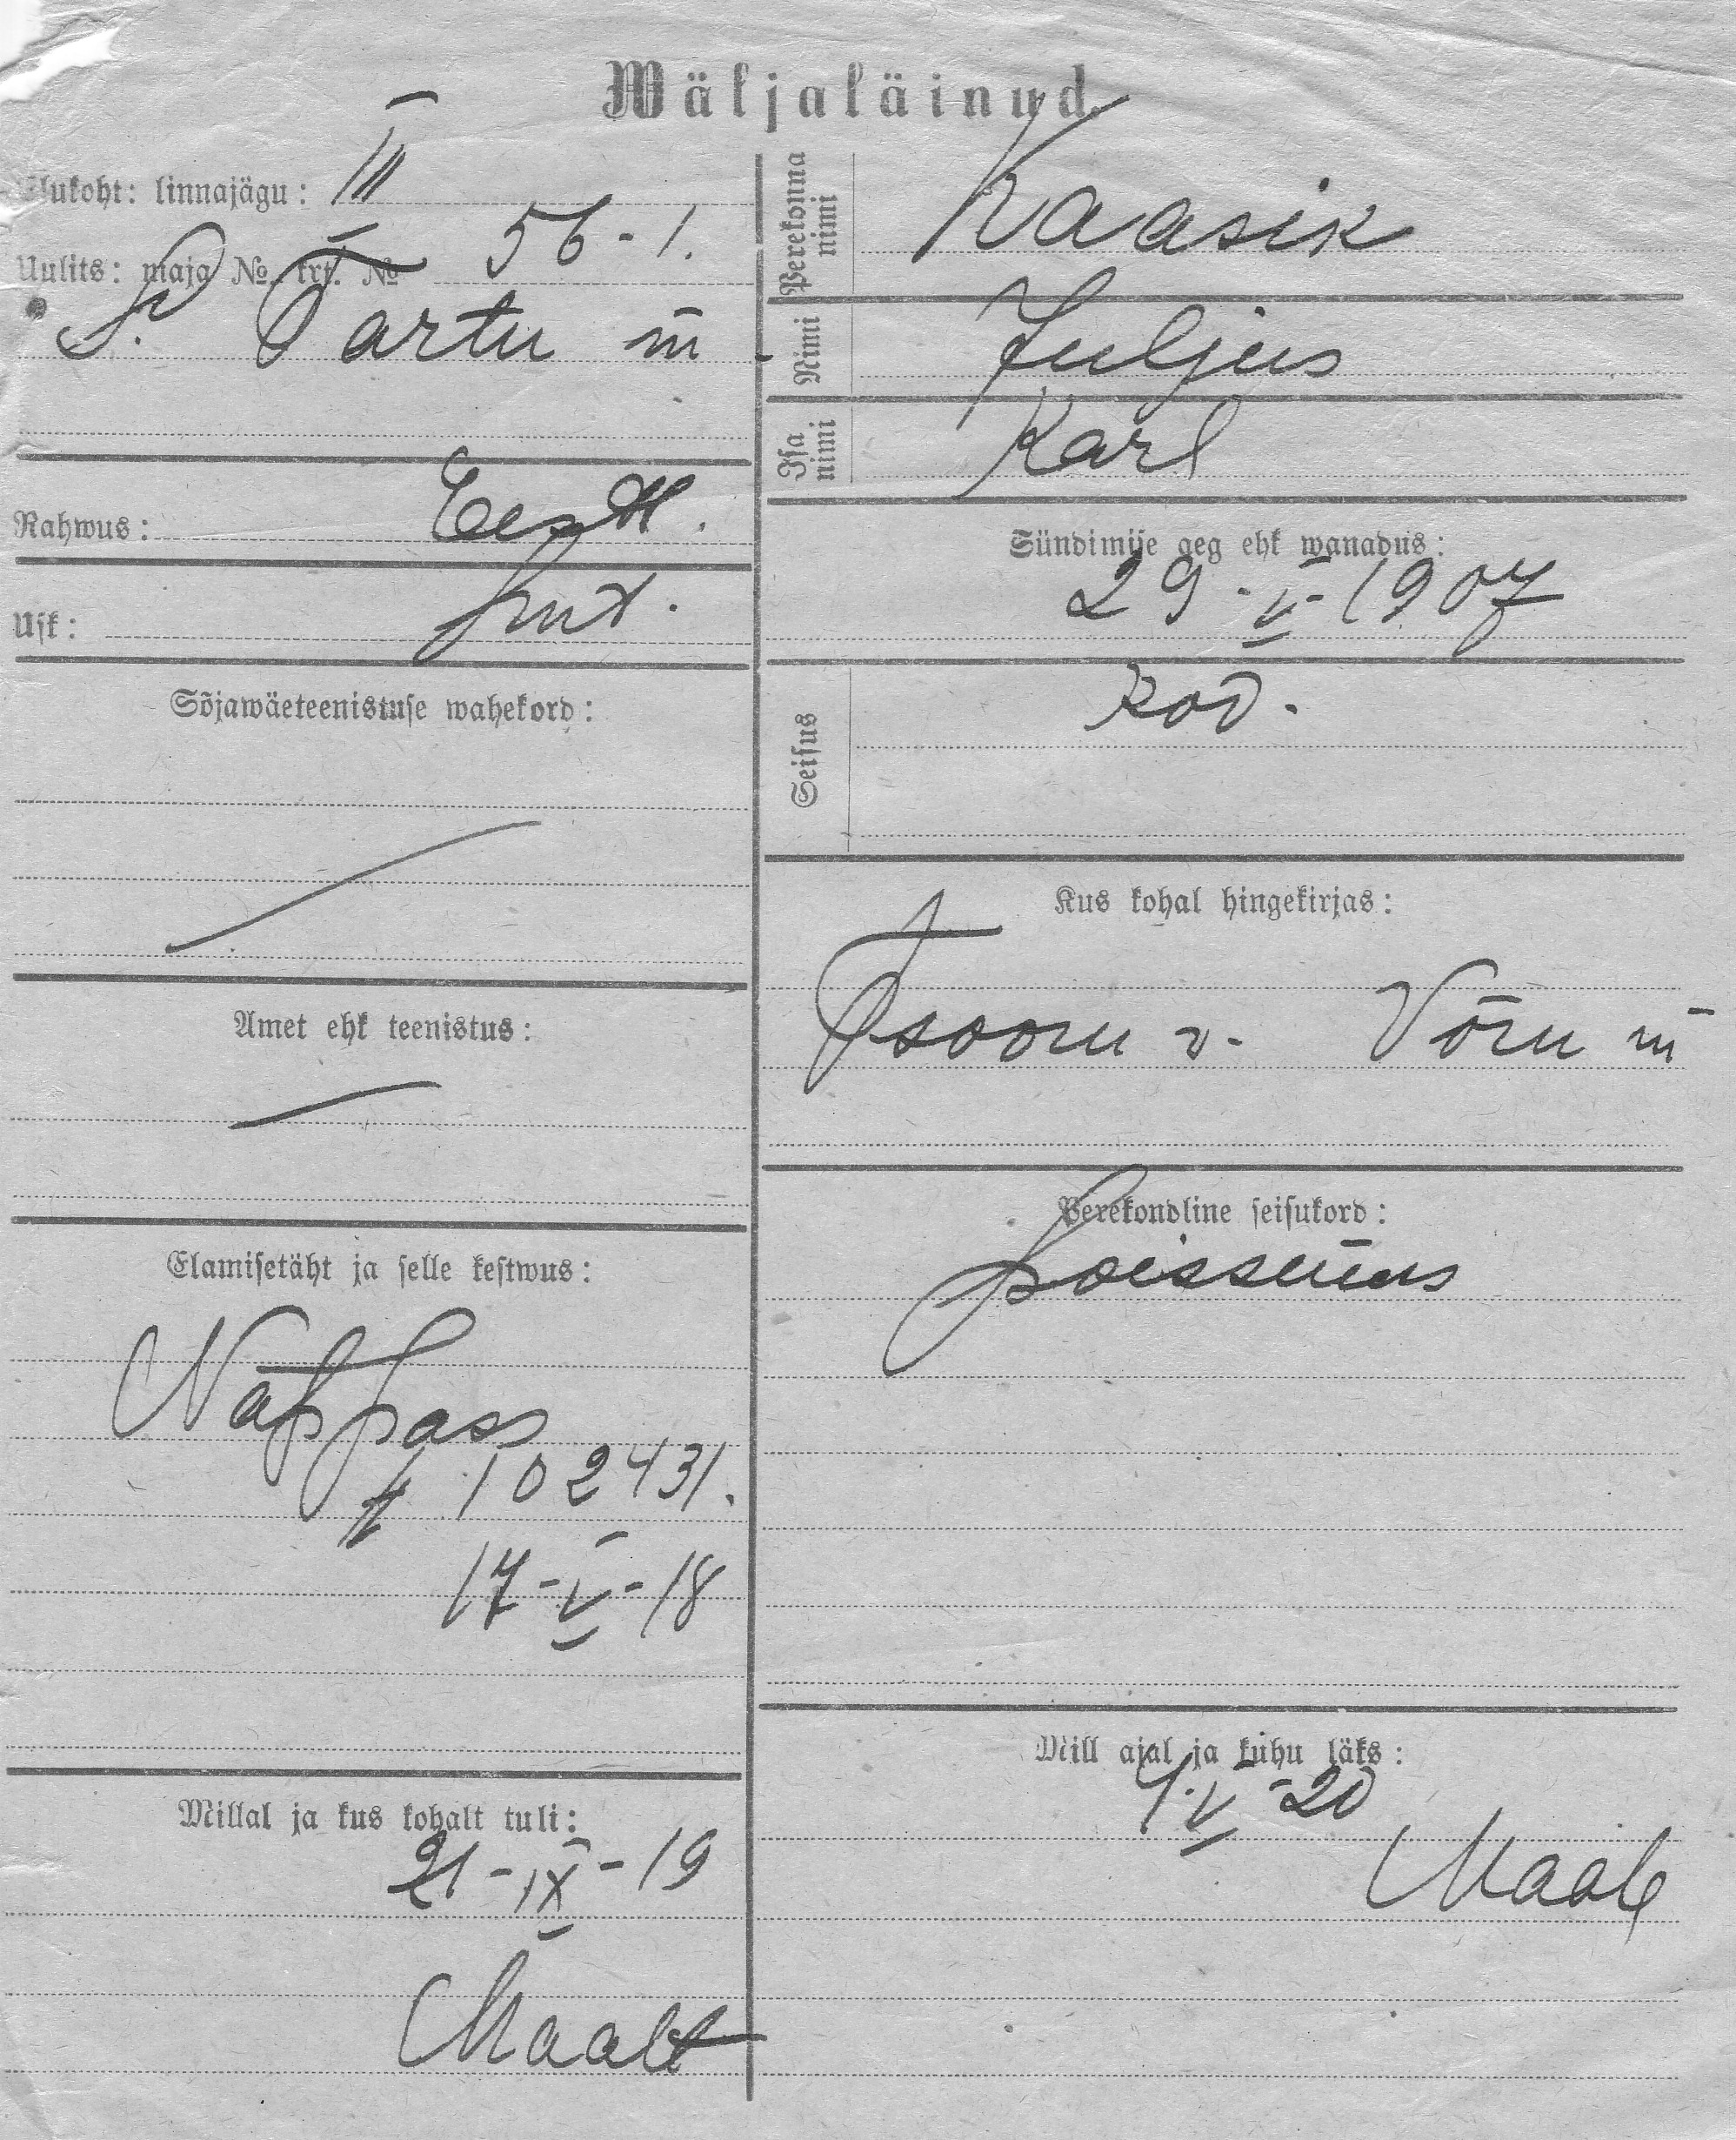 Wäljakäinud.
Elukoht: linnajagu: III
Uulits: maja № krt. № 56-1.
S. Tartu m̄
Rahwus: Eestl.
Usk: Lut.
Sõjawäeteenistuse wahekord:
Amet ehk teenistus:
Elamisetäht ja selle kestwus:
Nap pass
№ 102431.
17-V-18
Millal ja kus kohalt tuli:
21-IX-19
Maalt
Perekonna nimi Kaasik
Nimi Juljus
Isa nimi Karl
Sündimise aeg ehk wanadus:
29-V-1907
Seisus kod.
Kus kohal hingekirjas:
Tsooru v. Võru m̄
Perekondline seisukord:
poissmees
Mill ajal ja kuhu läks:
4.V-20
Maale